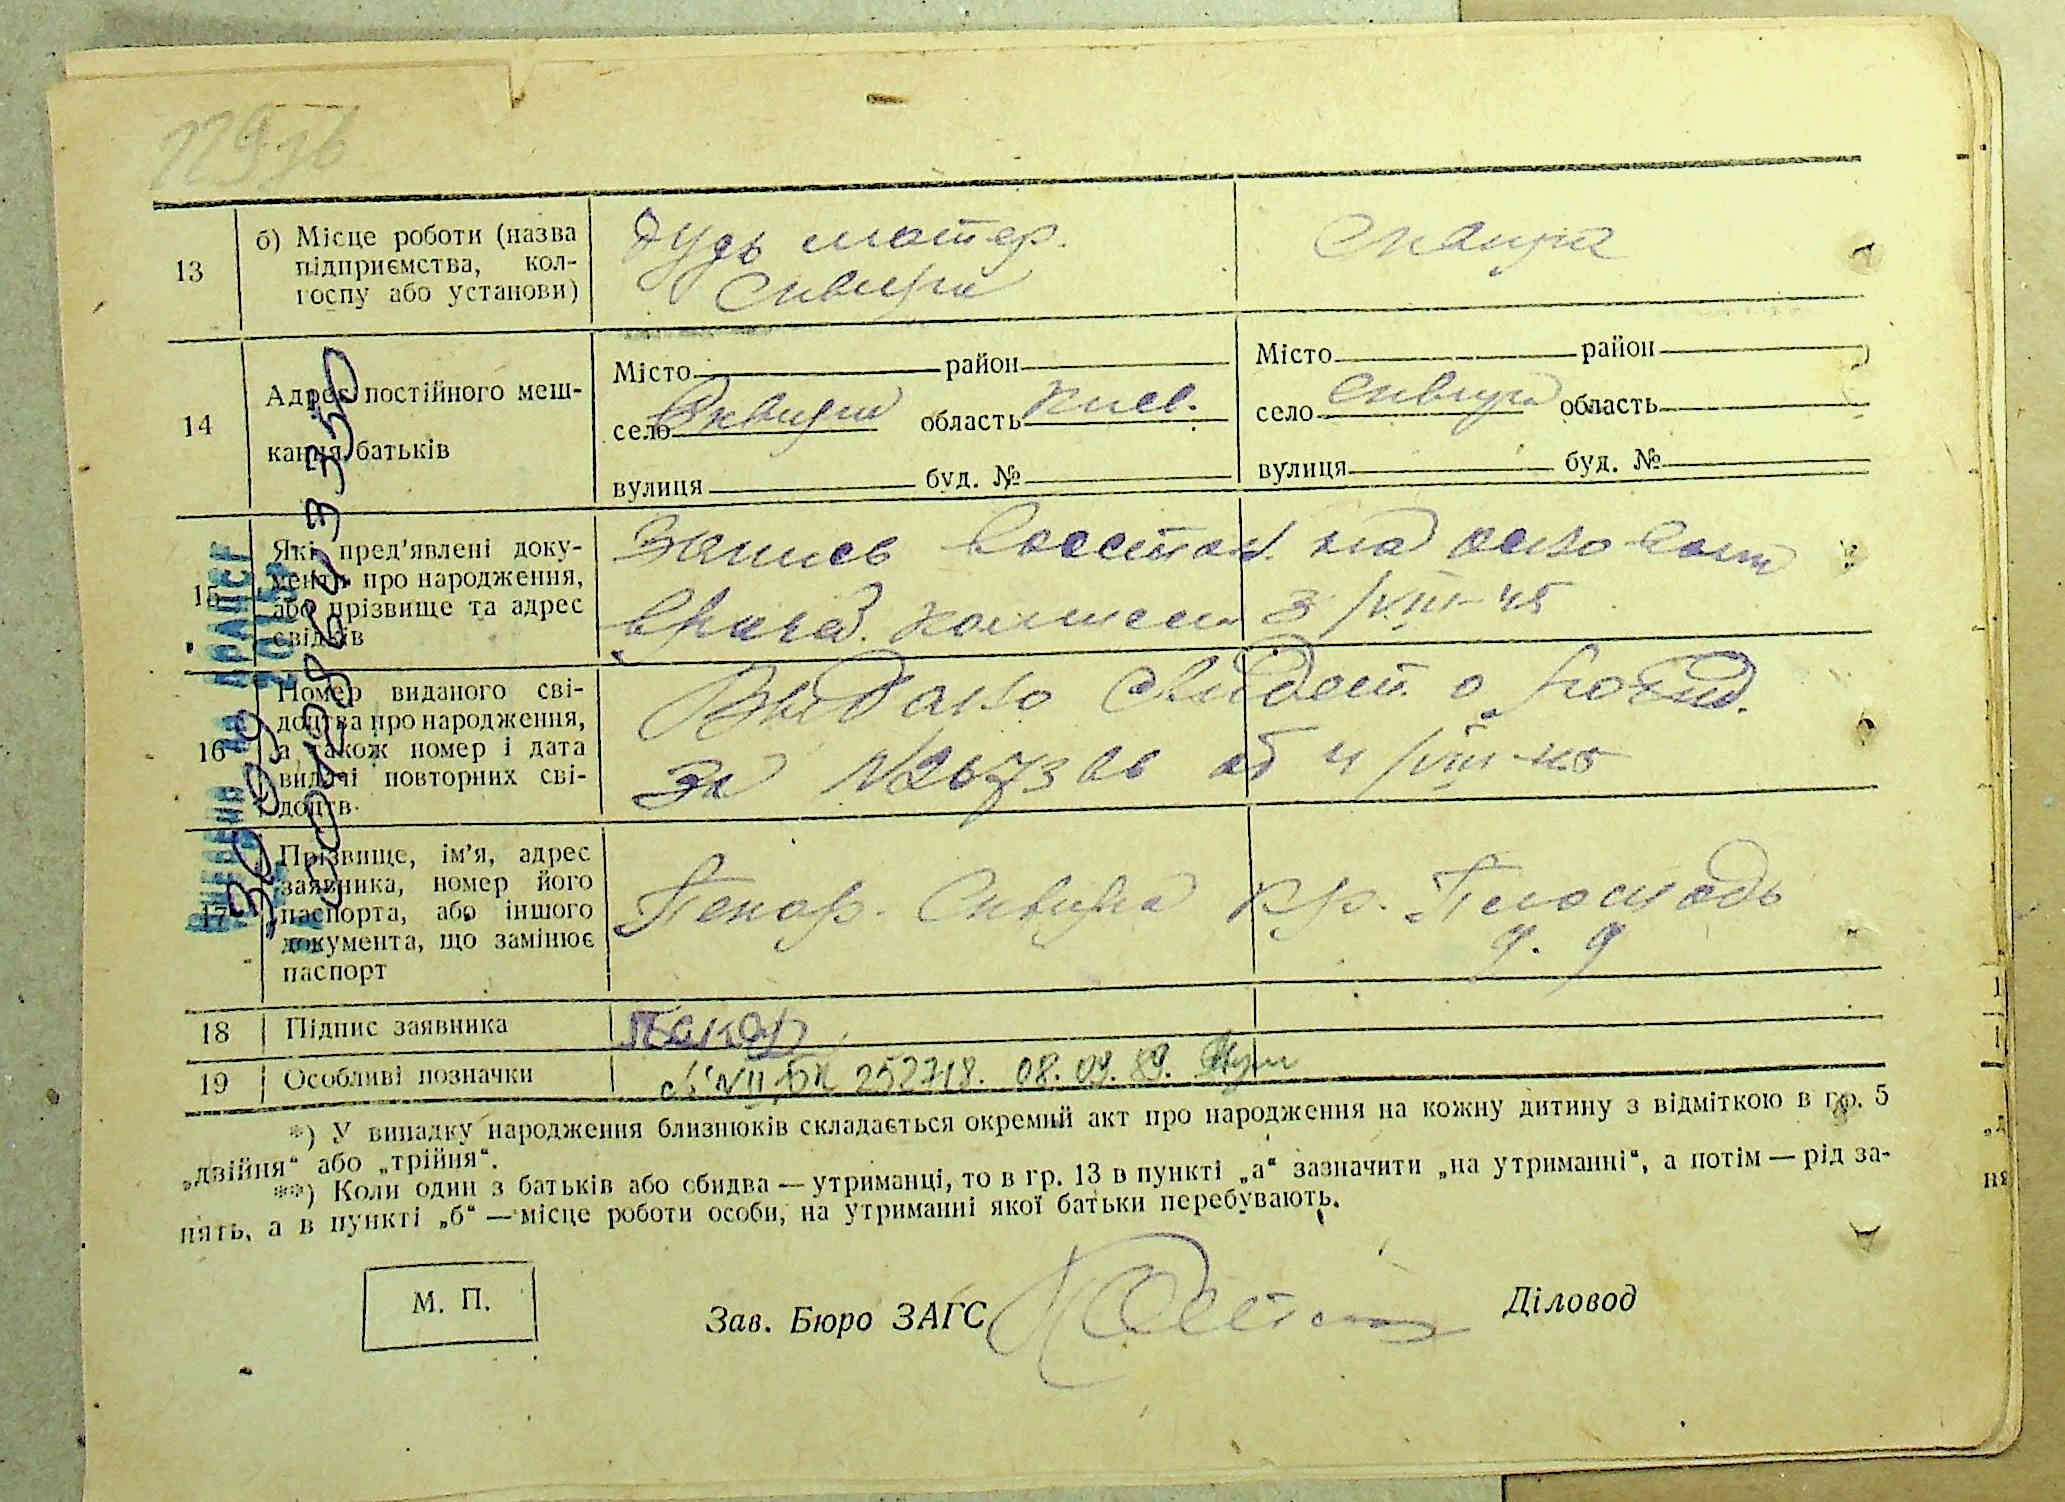 229 зв
13
б) Місце роботи (назва
підприємства, кол-
госпу або установи)
матер.
Сквира
Сквира
14
Адрес постійного меш-
кання батьків
Місто район
село Сквира область Киев.
вулиця буд. №
Місто район
село Сквира область
вулиця буд. №
15
Які пред'явлені доку-
менти про народження,
або прізвище та адрес
свідків
Запись восстан. на основан
врачеб. комисси 3/VIII-45
16
Номер виданого сві-
доцтва про народження,
а також номер і дата
видачі повторних сві-
доцтв
Выдано свидет. о рожд.
За № от 4/VIII-45
17
Прізвище, ім'я, адрес
заявника, номер його
паспорта, або іншого
документа, що замінює
паспорт
Сквира Кр. Площадь
д. 9
18
Підпис заявника
19
Особливі позначки
252718. 08.09.89.
*) У випадку народження близнюків складається окремий акт про народження на кожну дитину з відміткою в гр. 5
„двійня“ або „трійня“.
**) Коли один з батьків або обидва — утриманці, то в гр. 13 в пункті „а“ зазначити „на утриманні“, а потім — рід за-
нять, а в пункті „б“ — місце роботи особи, на утриманні якої батьки перебувають.
М. П.
Зав. Бюро ЗАГС
Діловод